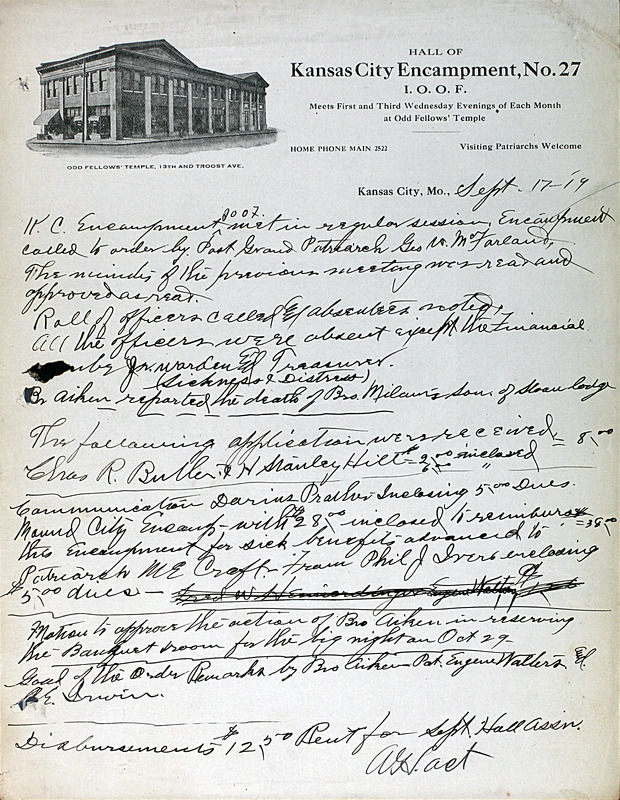 HALL OF
Kansas City Encampment, No. 27
I. O. O. F.
Meets First and Third Wednesday Evenings of Each Month
at Odd Fellows' Temple
HOME PHONE MAIN 2522
Visiting Patriarchs Welcome
ODD FELLOWS' TEMPLE, 13TH AND TROOST AVE.
Kansas City, Mo., Sept. 17-19
K. C. Encampment IOOF. met in regular session, Encampment
called to order by Past Grand Patriarch Geo W. McFarland,
The minutes of the previous meeting was read and
approved as read.
Roll of officers called & absentees noted,
All the officers were absent except the Financial
Jr. Warden & Treasurer.
(Sickness & Distress)
Br Aiken reported the death of Bro. Milam's son of Sloan lodge
The following application were received = 8.00
Chas R. Butler & H Stanley Hill inclosed
Communication Darius Prather Inclosing 5.00 Dues.
Mound City Encamp- with $28.00 inclosed to reimburse = 38.00
this Encampment for sick benefits advanced to
Patriarch M E Croft- From Phil J Ivers enclosing
$5.00 dues -
Motion to approve the action of Bro Aiken in reserving
the Banquet room for the big night on Oct 29-
Good of the Order Remarks by Bro Aiken- Pat. Eugene Walters &
E. Irwin.
Disbursements $12.50 Rent for Sept. Hall Assn.